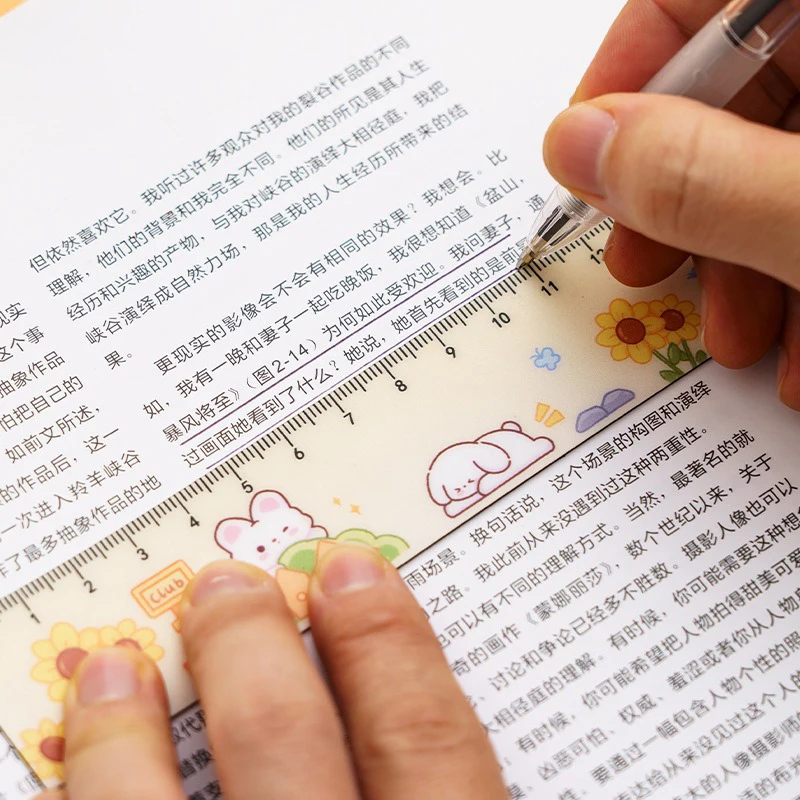 现实
这个事
抽象作品
怕把自己的
如前文所述，
的作品后，这一
一次进入羚羊峡谷
作了最多抽象作品的地
但依然喜欢它。我听过许多观众对我的裂谷作品的不同
理解，他们的背景和我完全不同。他们的所见是其人生
经历和兴趣的产物，与我对峡谷的演绎大相径庭，我把
峡谷演绎成自然力场，那是我的人生经历所带来的结
果。
更现实的影像会不会有相同的效果？我想会。比
如，我有一晚和妻子一起吃晚饭，我很想知道《盆山，
暴风将至》（图2-14）为何如此受欢迎。我问妻子，通
过画面她看到了什么？她说，她首先看到的是前
1 2 3 4 5 6 7 8 9 10 11 12
Club
雨场景。换句话说，这个场景的构图和演绎
之路。我此前从来没遇到过这种两重性。
也可以有不同的理解方式。当然，最著名的就
奇的画作《蒙娜丽莎》，数个世纪以来，关于
、讨论和争论已经多不胜数。摄影人像也可以
大相径庭的理解。有时候，你可能需要这种想
，有时候，你可能希望把人物拍得甜美可爱
、凶恶可怕、权威、羞涩或者你从人物
性，要通过一幅包含人物个性的照
表达给从来没见过这个人的
大的人像摄影师
的布光